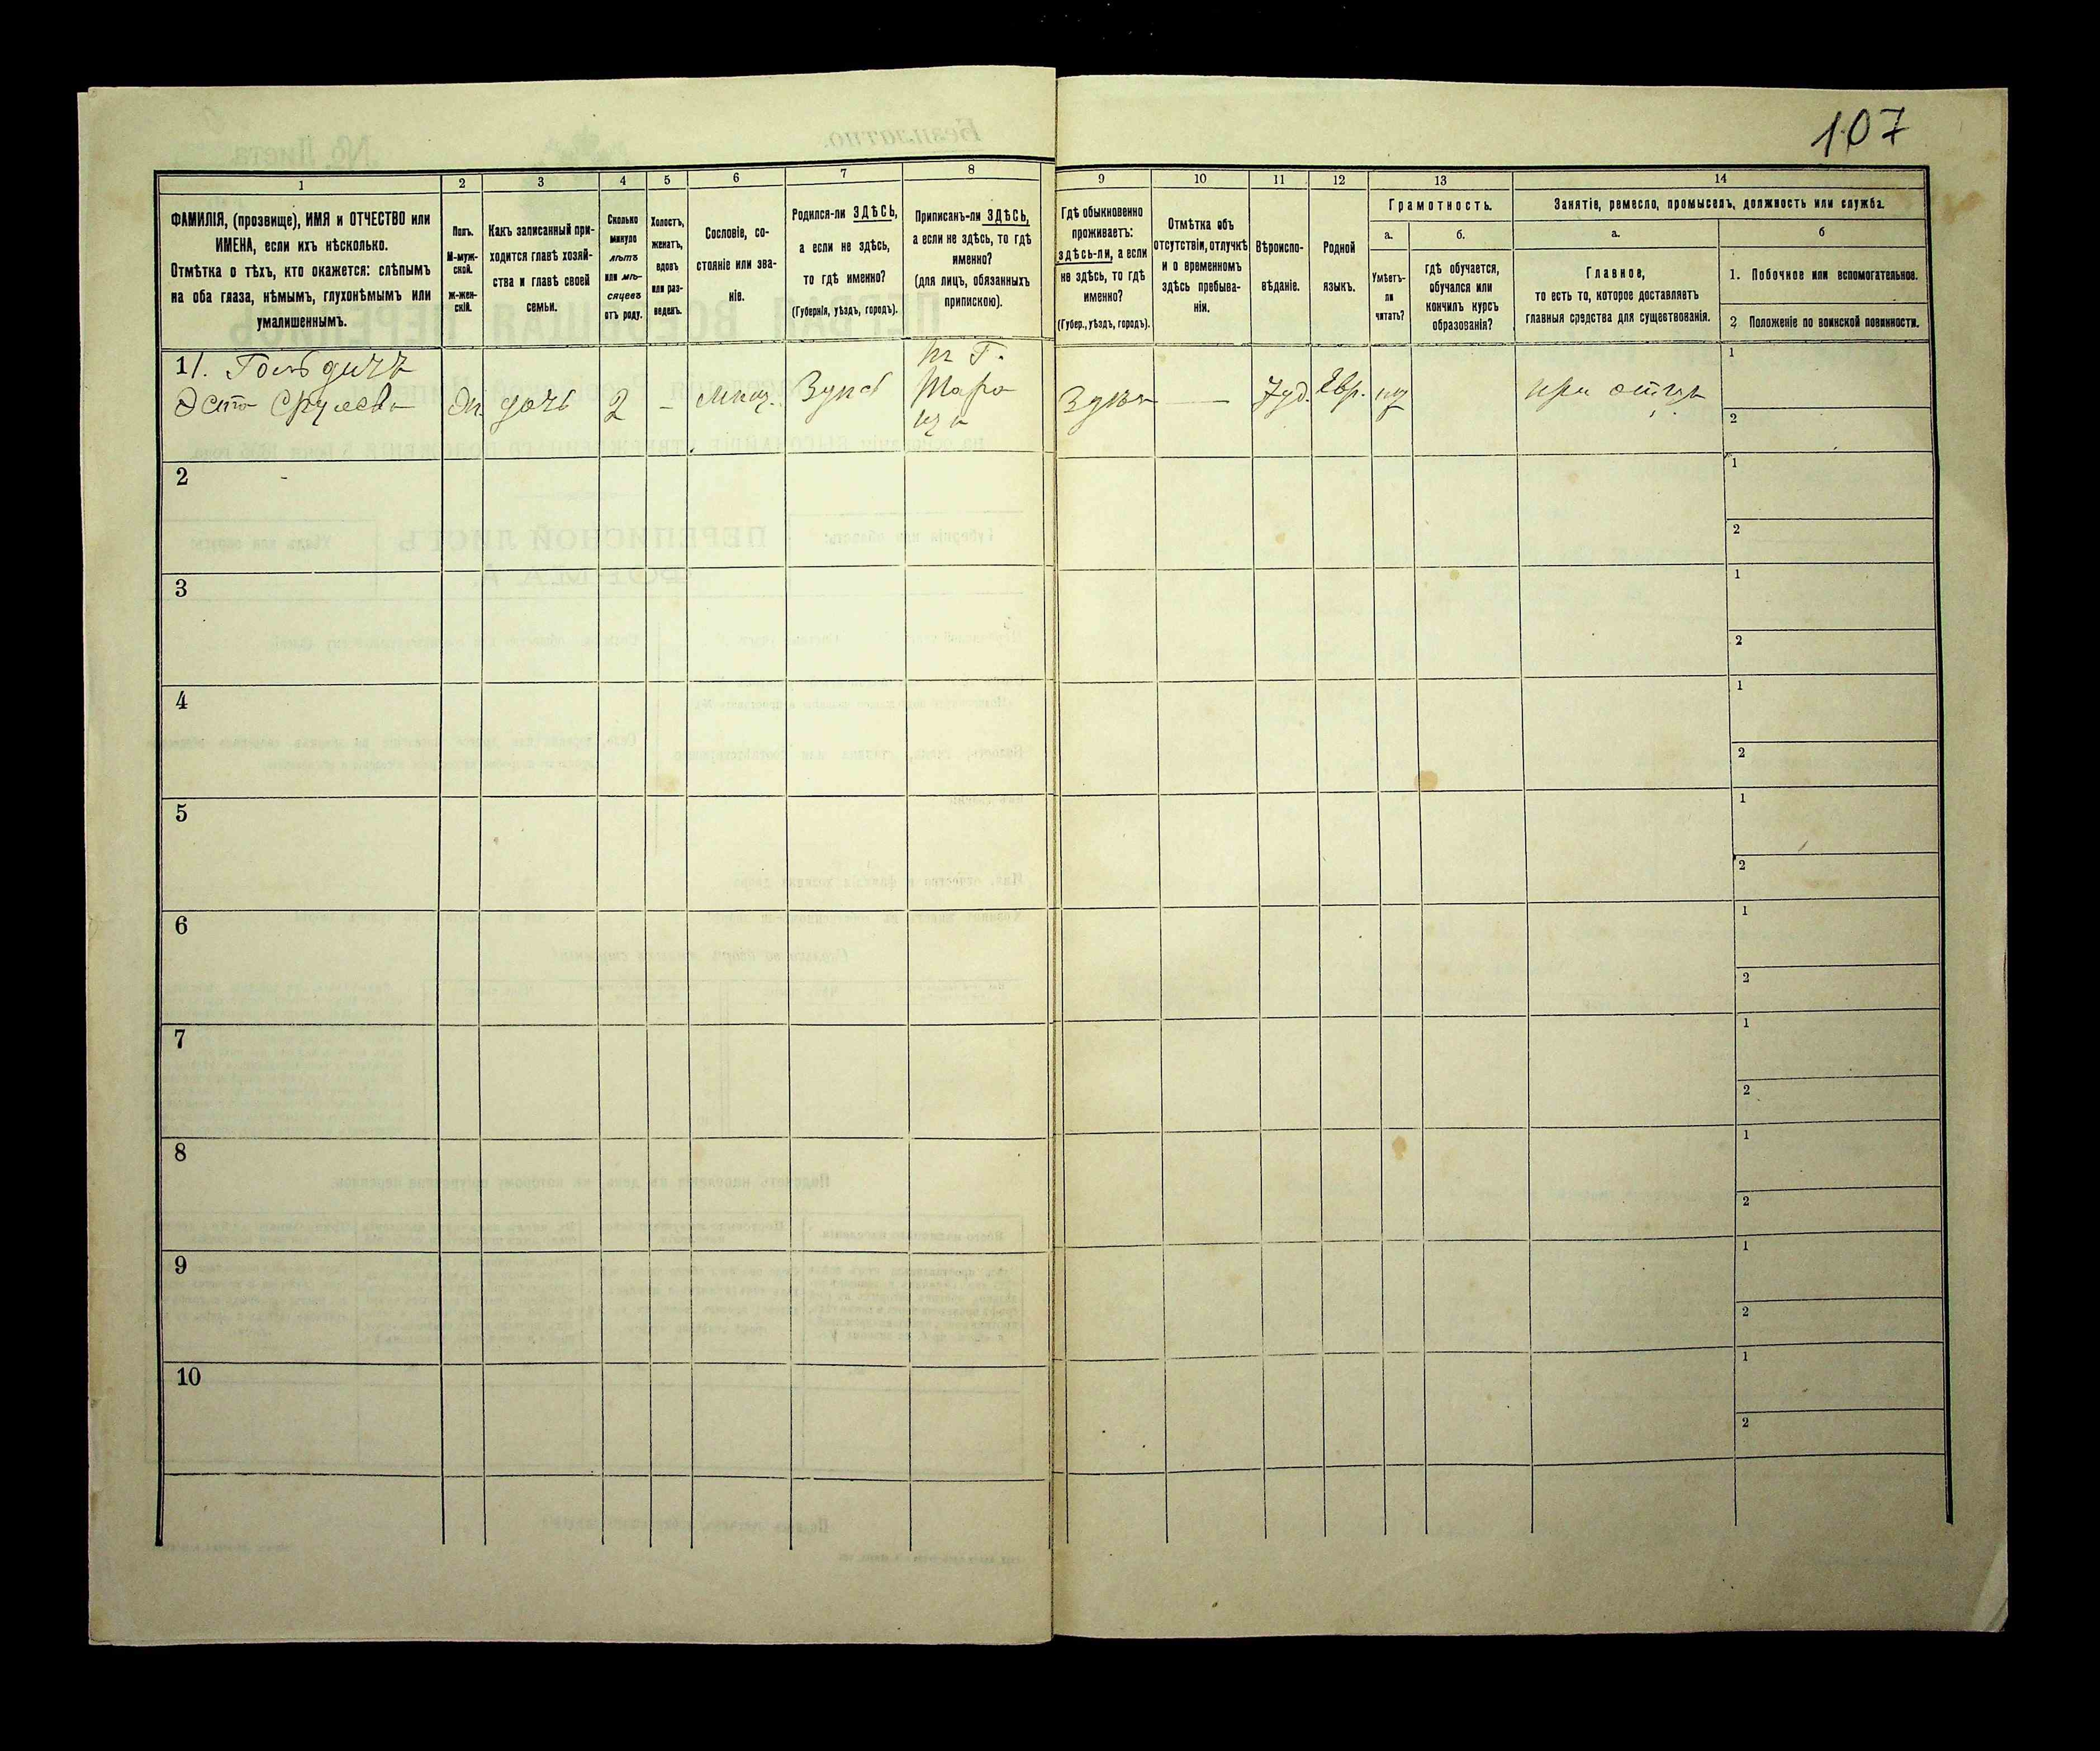 107
1
2
3
4
5
6
7
8
9
10
11
12
13
14
ФАМИЛІЯ, (прозвище), ИМЯ и ОТЧЕСТВО или
ИМЕНА, если ихъ нѣсколько.
Отмѣтка о тѣхъ, кто окажется: слѣпымъ
на оба глаза, нѣмымъ, глухонѣмымъ или
умалишеннымъ.
Полъ.
М-муж-
ской.
Ж-жен-
скій.
Какъ записанный при-
ходится главѣ хозяй-
ства и главѣ своей
семьи.
Сколько
минуло
лѣтъ
или мѣ-
сяцевъ
отъ роду.
Холостъ,
женатъ,
вдовъ
или раз-
веденъ.
Сословіе, со-
стояніе или зва-
ніе.
Родился-ли ЗДѢСЬ,
а если не здѣсь,
то гдѣ именно?
(Губернія, уѣздъ, городъ).
Приписанъ-ли ЗДѢСЬ,
а если не здѣсь, то гдѣ
именно?
(для лицъ, обязанныхъ
припискою).
Гдѣ обыкновенно
проживаетъ:
здѣсь-ли, а если
не здѣсь, то гдѣ
именно?
(Губер., уѣздъ, городъ).
Отмѣтка объ
отсутствіи, отлучкѣ
и о временномъ
здѣсь пребыва-
ніи.
Вѣроиспо-
вѣданіе.
Родной
языкъ.
Грамотность.
а.
Умѣетъ-
ли
читать?
б.
гдѣ обучается,
обучался или
кончилъ курсъ
образованія?
Занятіе, ремесло, промыселъ, должность или служба.
а.
Главное,
то есть то, которое доставляетъ
главныя средства для существованія.
б
1. Побочное или вспомогательное.
2 Положеніе по воинской повинности.
1
дочь
2
-
Здѣсь
—
Іуд.
Евр.
при отцѣ
1
2
2
1
2
3
1
2
4
1
2
5
1
2
6
1
2
7
1
2
8
1
2
9
1
2
10
1
2